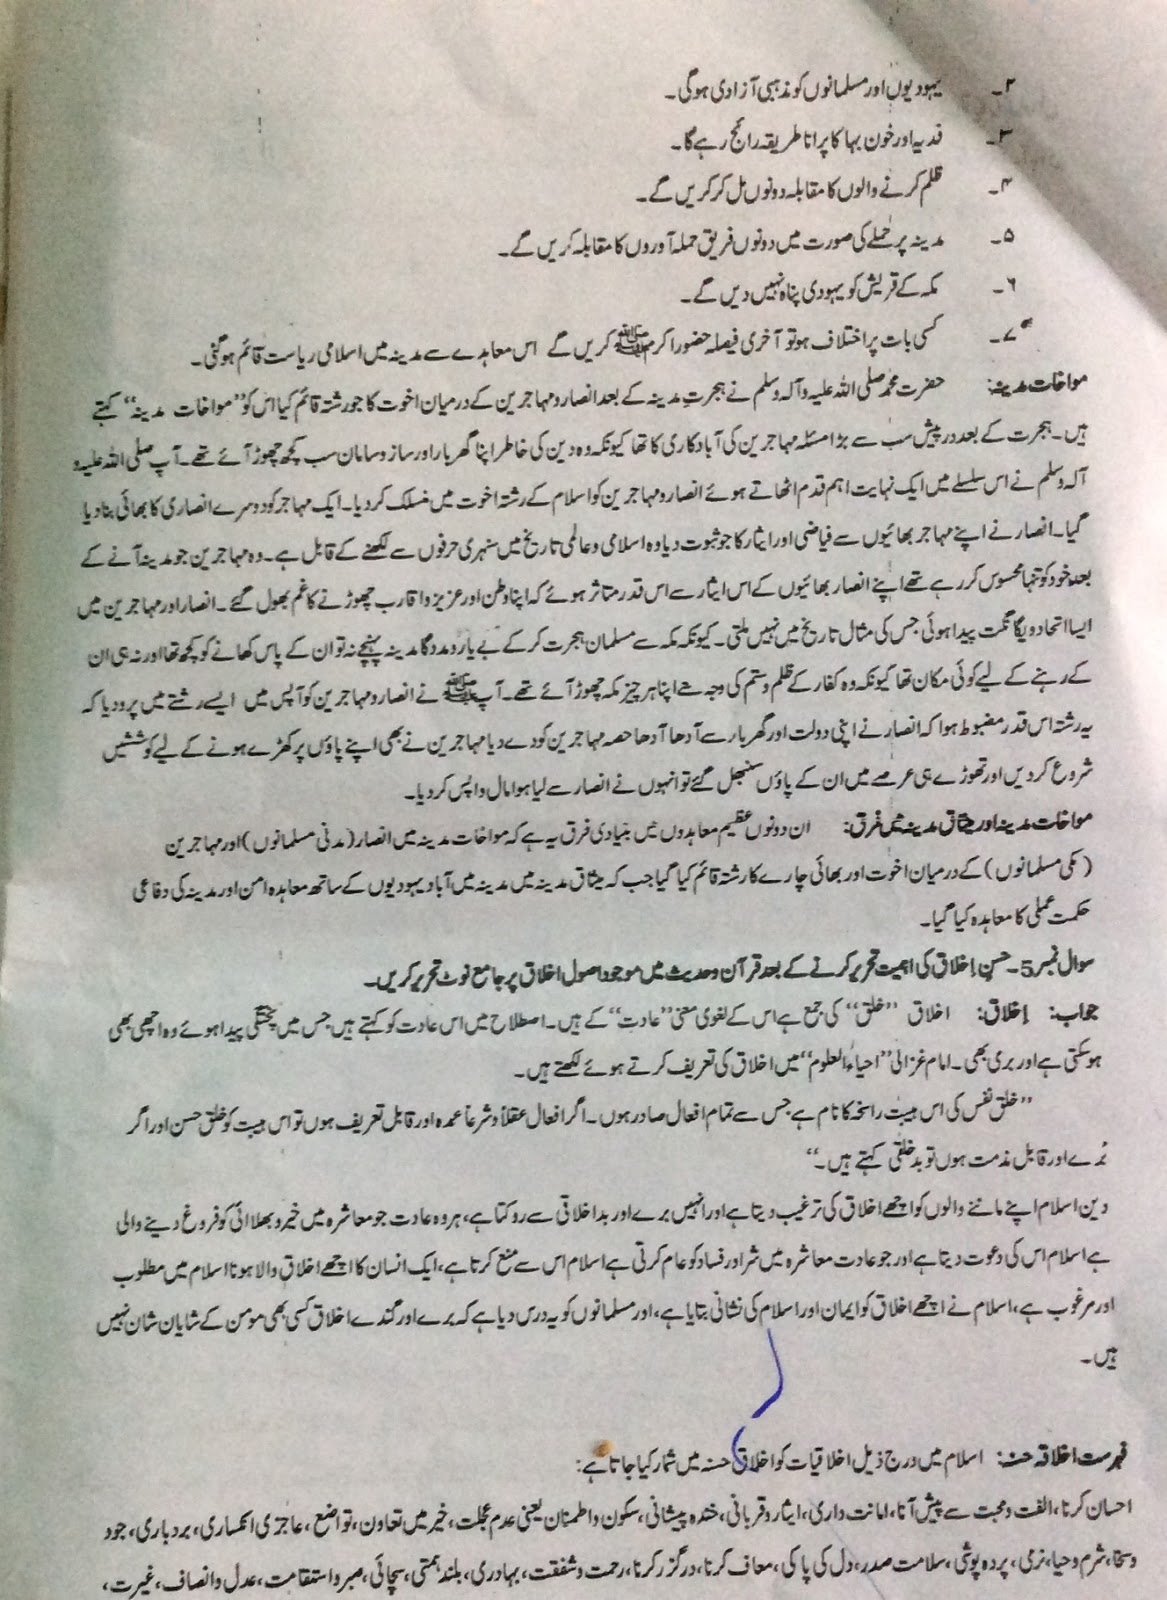 ۲۔ یہودیوں اور مسلمانوں کو مذہبی آزادی ہوگی۔
۳۔ فدیہ اور خون بہا کا پرانا طریقہ رائج رہے گا۔
۴۔ ظلم کرنے والوں کا مقابلہ دونوں مل کر کریں گے۔
۵۔ مدینہ پر حملے کی صورت میں دونوں فریق حملہ آوروں کا مقابلہ کریں گے۔
۶۔ مکہ کے قریش کو یہودی پناہ نہیں دیں گے۔
۷۔ کسی بات پر اختلاف ہو تو آخری فیصلہ حضور اکرم ﷺ کریں گے اس معاہدے سے مدینہ میں اسلامی ریاست قائم ہو گئی۔
مواخات مدینہ: حضرت محمد صلی اللہ علیہ وآلہ وسلم نے ہجرتِ مدینہ کے بعد انصار و مہاجرین کے درمیان اخوت کا جو رشتہ قائم کیا اس کو ”مواخات مدینہ“ کہتے
ہیں۔ ہجرت کے بعد درپیش سب سے بڑا مسئلہ مہاجرین کی آبادکاری کا تھا کیونکہ وہ دین کی خاطر اپنا گھر بار اور ساز و سامان سب کچھ چھوڑ آئے تھے۔ آپ صلی اللہ علیہ و
آلہ وسلم نے اس سلسلے میں ایک نہایت اہم قدم اٹھاتے ہوئے انصار و مہاجرین کو اسلام کے رشتہ اخوت میں منسلک کر دیا۔ ایک مہاجر کو دوسرے انصاری کا بھائی بنا دیا
گیا۔ انصار نے اپنے مہاجر بھائیوں سے فیاضی اور ایثار کا جو ثبوت دیا وہ اسلامی و عالمی تاریخ میں سنہری حرفوں سے لکھنے کے قابل ہے۔ وہ مہاجرین جو مدینہ آنے کے
بعد خود کو تنہا محسوس کر رہے تھے اپنے انصار بھائیوں کے اس ایثار سے اس قدر متاثر ہوئے کہ اپنا وطن اور عزیز و اقارب چھوڑنے کا غم بھول گئے۔ انصار اور مہاجرین میں
ایسا اتحاد و یگانگت پیدا ہوئی جس کی مثال تاریخ میں نہیں ملتی۔ کیونکہ مکہ سے مسلمان ہجرت کر کے بے یار و مددگار مدینہ پہنچے نہ تو ان کے پاس کھانے کو کچھ تھا اور نہ ہی ان
کے رہنے کے لیے کوئی مکان تھا کیونکہ وہ کفار کے ظلم و ستم کی وجہ سے اپنا ہر چیز مکہ چھوڑ آئے تھے۔ آپ ﷺ نے انصار و مہاجرین کو آپس میں ایسے رشتے میں پرو دیا کہ
یہ رشتہ اس قدر مضبوط ہوا کہ انصار نے اپنی دولت اور گھر بار سے آدھا آدھا حصہ مہاجرین کو دے دیا مہاجرین نے بھی اپنے پاؤں پر کھڑے ہونے کے لیے کوششیں
شروع کر دیں اور تھوڑے ہی عرصے میں ان کے پاؤں سنبھل گئے تو انہوں نے انصار سے لیا ہوا مال واپس کر دیا۔
مواخات مدینہ اور میثاق مدینہ میں فرق: ان دونوں عظیم معاہدوں میں بنیادی فرق یہ ہے کہ مواخات مدینہ میں انصار (مدنی مسلمانوں) اور مہاجرین
(مکی مسلمانوں) کے درمیان اخوت اور بھائی چارے کا رشتہ قائم کیا گیا جب کہ میثاق مدینہ میں مدینہ میں آباد یہودیوں کے ساتھ معاہدہ امن اور مدینہ کی دفاعی
حکمت عملی کا معاہدہ کیا گیا۔
سوال نمبر 5۔ حسنِ اخلاق کی اہمیت تحریر کرنے کے بعد قرآن و حدیث میں موجود اصول اخلاق پر جامع نوٹ تحریر کریں۔
جواب: اخلاق: اخلاق ”خلق“ کی جمع ہے اس کے لغوی معنی ”عادت“ کے ہیں۔ اصطلاح میں اس عادت کو کہتے ہیں جس میں پختگی پیدا ہوئے وہ اچھی بھی
ہو سکتی ہے اور بری بھی۔ امام غزالی ”احیاء العلوم“ میں اخلاق کی تعریف کرتے ہوئے لکھتے ہیں۔
”خلق نفس کی اس ہیبت راسخہ کا نام ہے جس سے تمام افعال صادر ہوں۔ اگر افعال عقلاً و شرعاً عمدہ اور قابل تعریف ہوں تو اس ہیبت کو خلق حسن اور اگر
بُرے اور قابل مذمت ہوں تو بد خلقی کہتے ہیں۔“
دین اسلام اپنے ماننے والوں کو اچھے اخلاق کی ترغیب دیتا ہے اور انہیں برے اور بداخلاقی سے روکتا ہے، ہر وہ عادت جو معاشرہ میں خیر و بھلائی کو فروغ دینے والی
ہے اسلام اس کی دعوت دیتا ہے اور جو عادت معاشرہ میں شر اور فساد کو عام کرتی ہے اسلام اس سے منع کرتا ہے، ایک انسان کا اچھے اخلاق والا ہونا اسلام میں مطلوب
اور مرغوب ہے، اسلام نے اچھے اخلاق کو ایمان اور اسلام کی نشانی بتایا ہے، اور مسلمانوں کو یہ درس دیا ہے کہ برے اور گندے اخلاق کسی بھی مومن کے شایان شان نہیں
ہیں۔
فہرست اخلاقہ حسنہ: اسلام میں درج ذیل اخلاقیات کو اخلاق حسنہ میں شمار کیا جاتا ہے:
احسان کرنا، الفت و محبت سے پیش آنا، امانت داری، ایثار و قربانی، خندہ پیشانی، سکون و اطمنان یعنی عدم عجلت، خیر میں تعاون، تواضع، عاجزی انکساری، بردباری، جود
و سخا، شرم و حیا، نرمی، پردہ پوشی، سلامت صدر، دل کی پاکی، معاف کرنا، درگزر کرنا، رحمت و شفقت، بہادری، بلند ہمتی، سچائی، صبر و استقامت، عدل و انصاف، غیرت،